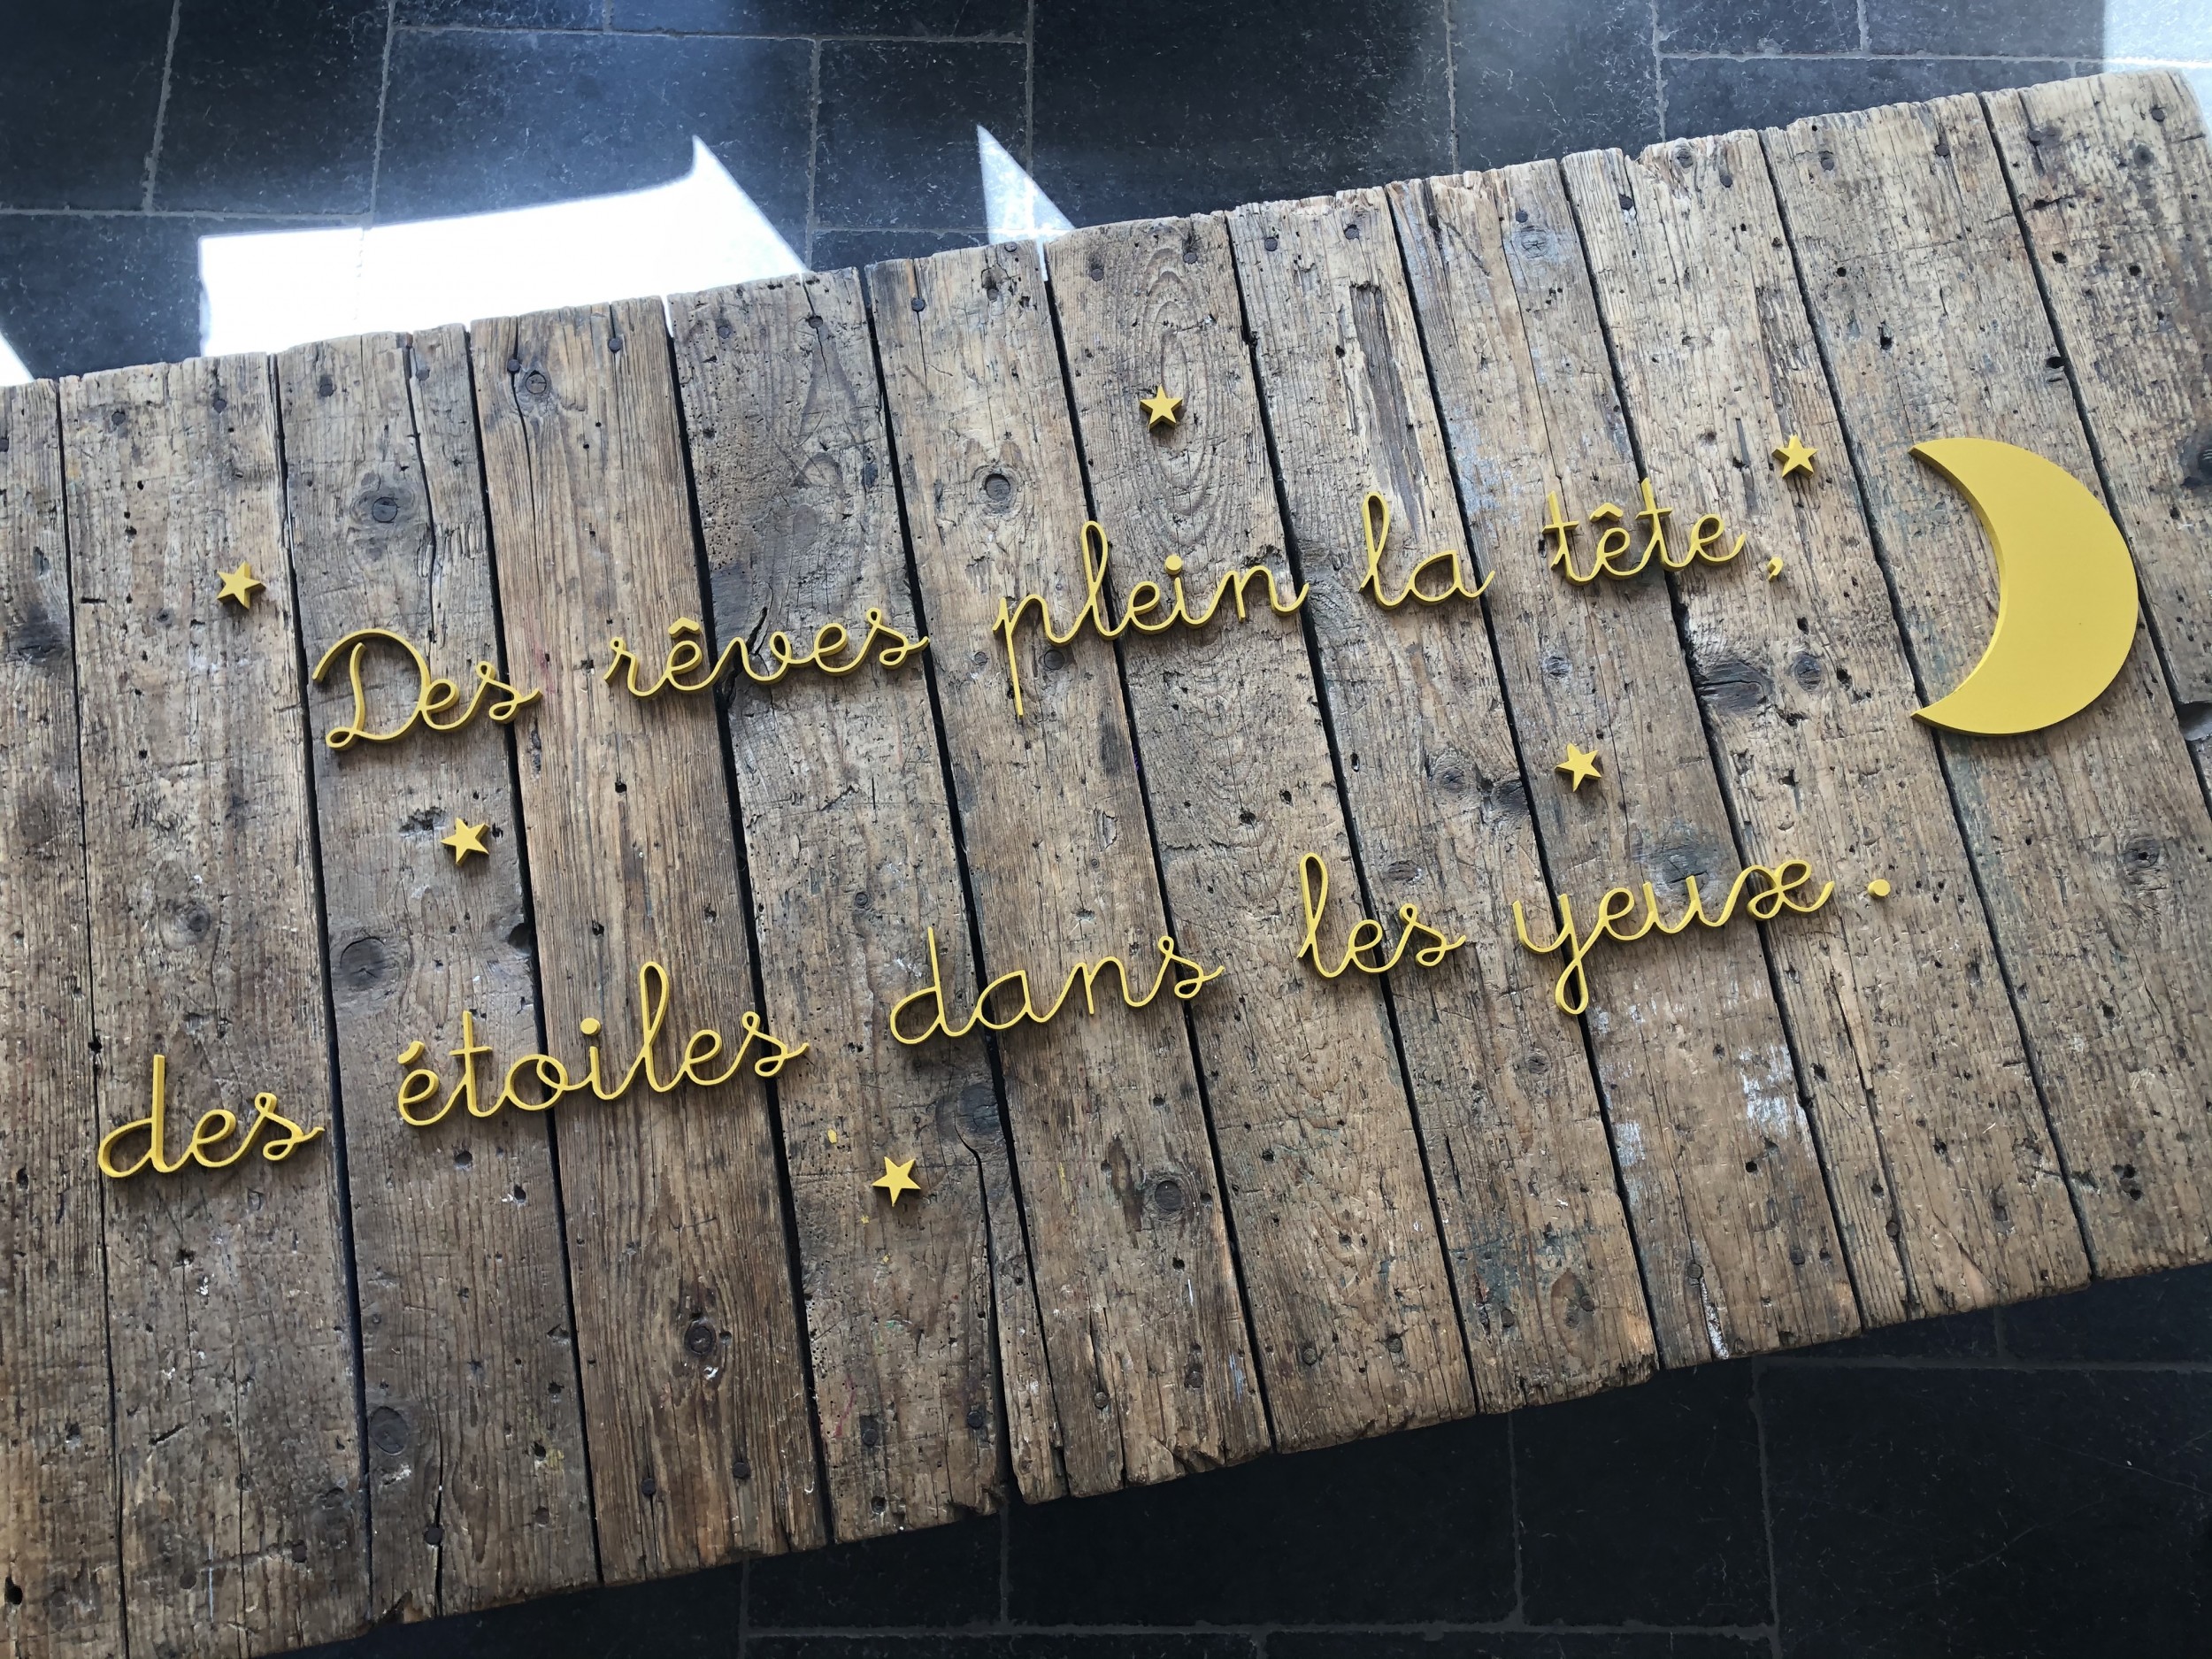 Des rêves plein la tête,
des étoiles dans les yeux.